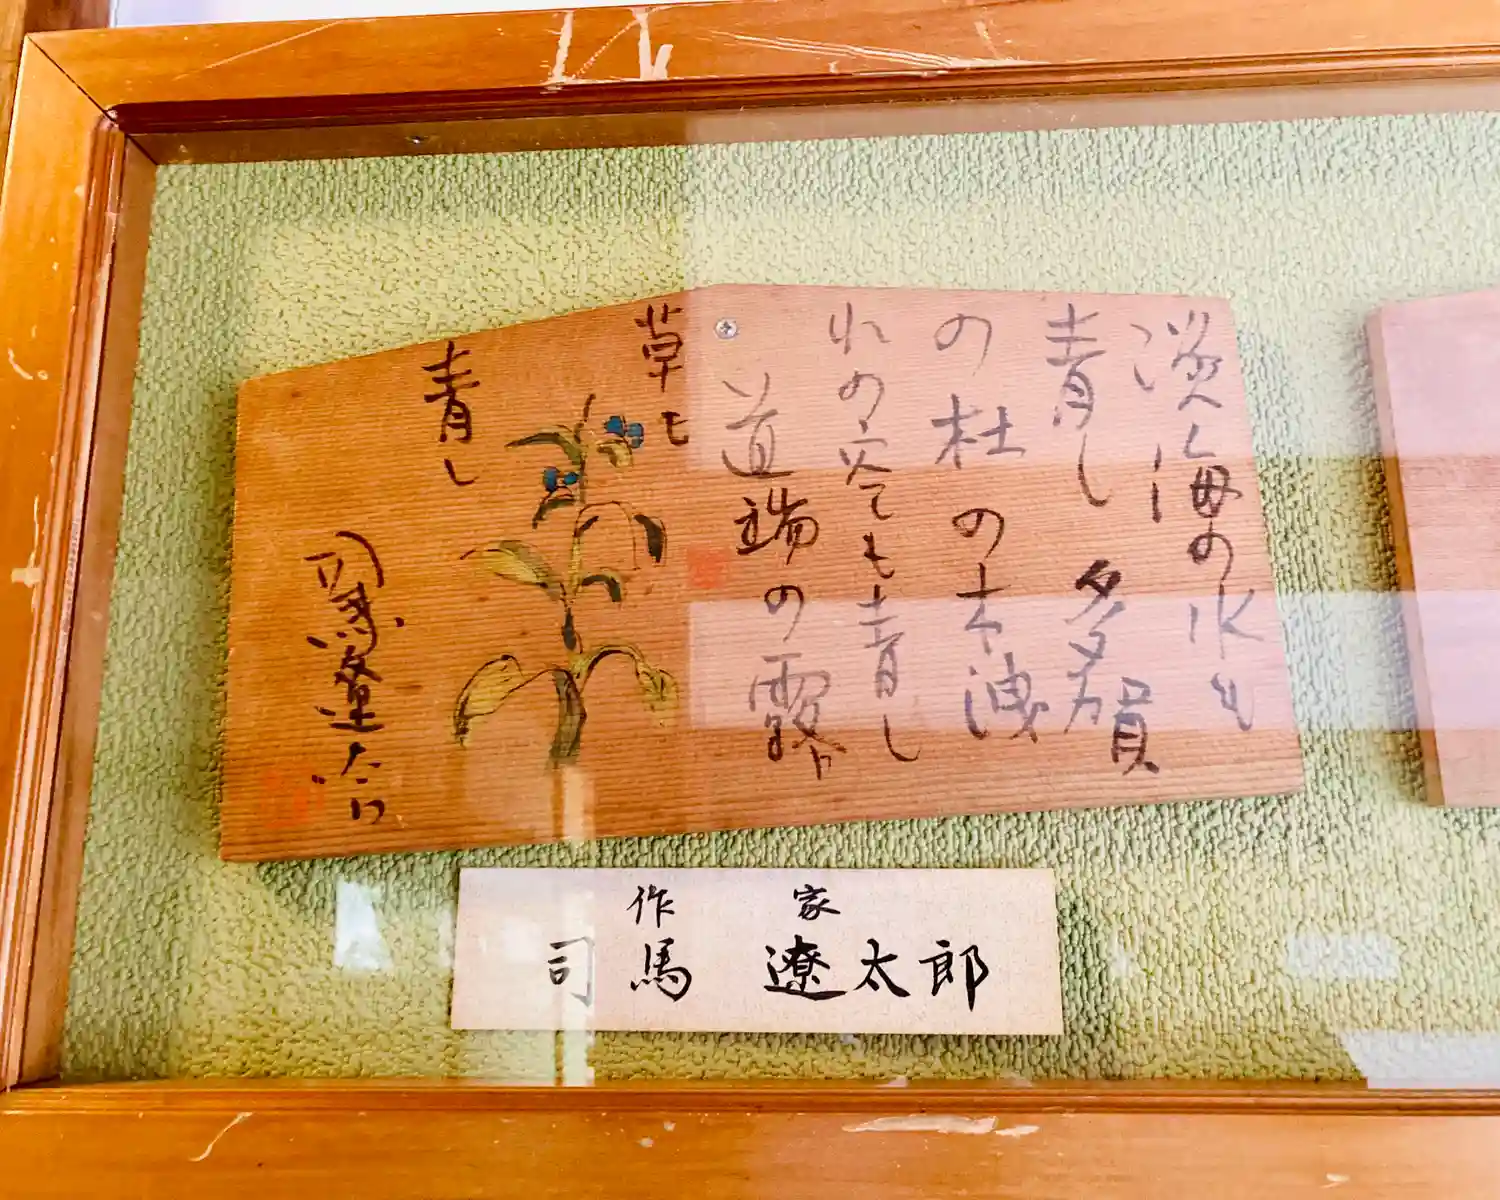 淡海の水も
青し 多賀
の杜の木洩
れの空も青し
道端の露
草も
青し
司馬遼太郎
作家
司馬 遼太郎